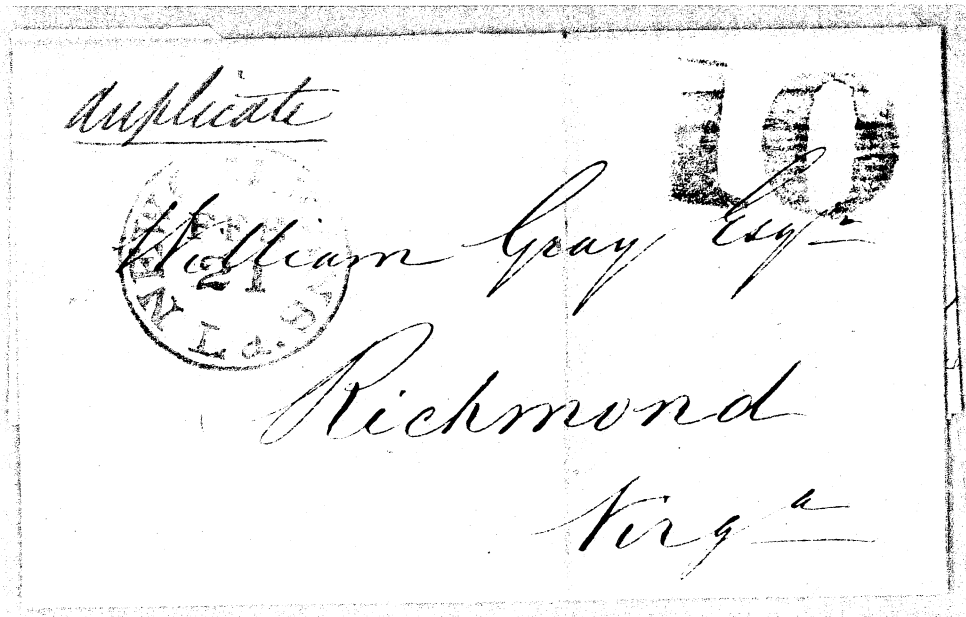 duplicate
10
William Gray Esqr
21
La.
Richmond
Virga